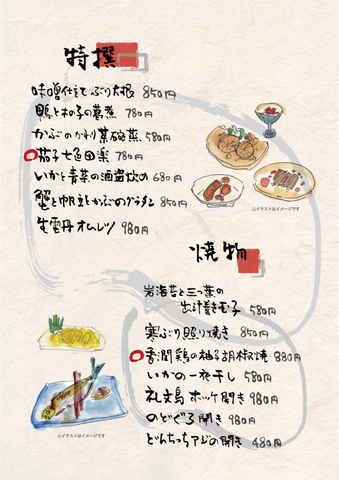 特撰
味噌仕立てぶり大根 850円
鴨と木の子の葛煮 780円
かぶのかわり茶碗蒸 580円
茄子七色田楽 780円
いかと青菜の酒盗炒め 680円
蟹と帆立とかぶのグラタン 850円
生雲丹オムレツ 980円
△イラストはイメージです
焼物
岩海苔と三つ葉の
出汁巻き玉子 580円
寒ぶり照り焼き 850円
鶏の柚子胡椒焼 880円
いかの一夜干し 580円
礼文島 ホッケ開き 980円
のどぐろ開き 980円
どんちっちアジの開き 480円
△イラストはイメージです